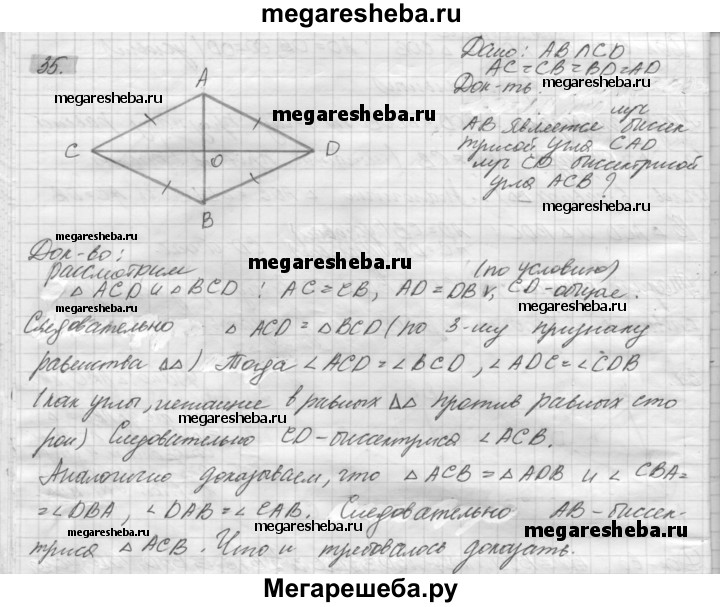 megaresheba.ru
35.
Дано: AB ∩ CD
AC = CB = BD = AD
Док-ть
луч
AB является биссек
трисой угла CAD
луч CD биссектрисой
угла ACB?
megaresheba.ru
megaresheba.ru
megaresheba.ru
A
C
O
D
B
megaresheba.ru
megaresheba.ru
megaresheba.ru
Док-во:
рассмотрим
(по условию)
△ ACD и △ BCD : AC = CB, AD = DB, CD - общая.
Следовательно △ ACD = △ BCD (по 3-му признаку
равенства △△) Тогда ∠ ACD = ∠ BCD, ∠ ADC = ∠ CDB
(как углы, лежащие в равных △△ против равных сто
рон) Следовательно CD - биссектриса ∠ ACB.
Аналогично доказываем, что △ ACB = △ ADB и ∠ CBA =
= ∠ DBA, ∠ DAB = ∠ CAB. Следовательно AB - биссек-
триса △ ACB. Что и требовалось доказать.
megaresheba.ru
megaresheba.ru
megaresheba.ru
megaresheba.ru
megaresheba.ru
megaresheba.ru
megaresheba.ru
Мегарешеба.ру